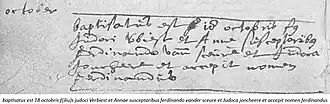 october
baptisatus est 18 octobris f
Judoci Verbiest et Annæ susceptoribus
ferdinando van sceure et Judoca
Joncheere et accepit nomen
ferdinandus
baptisatus est 18 octobris f(iliu)s judoci Verbiest et Annae susceptoribus ferdinando vander sceure et Iudoca joncheere et accepit nomen ferdinandi